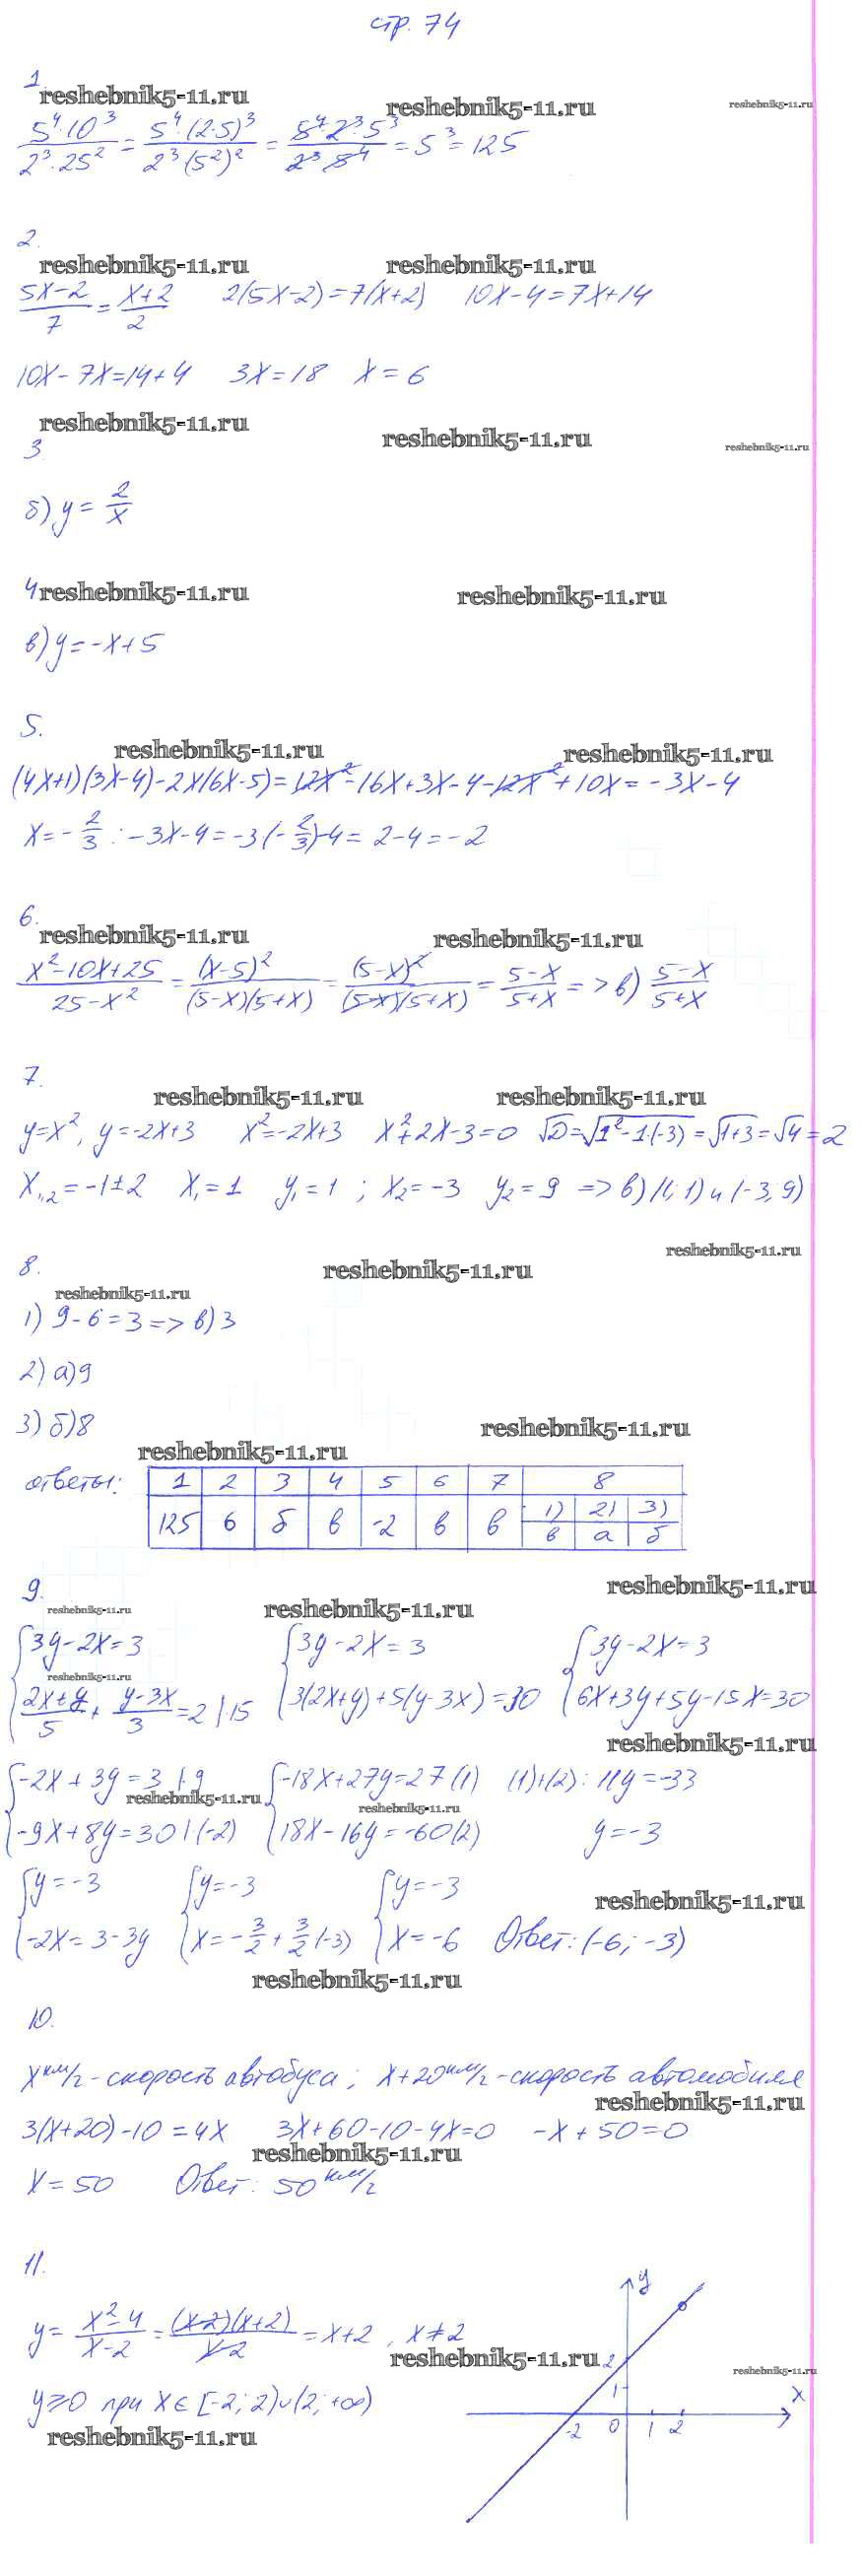 стр. 74
1.
reshebnik5-11.ru reshebnik5-11.ru reshebnik5-11.ru
5⁴·10³/2³·25² = 5⁴·(2·5)³/2³·(5²)² = 5⁴·2³·5³/2³·5⁴ = 5³ = 125
2.
reshebnik5-11.ru reshebnik5-11.ru
5x-2/7 = x+2/2 2(5x-2)=7(x+2) 10x-4=7x+14
10x-7x=14+4 3x=18 x=6
reshebnik5-11.ru reshebnik5-11.ru reshebnik5-11.ru
3
б) y = 2/x
4 reshebnik5-11.ru reshebnik5-11.ru
в) y=-x+5
5.
reshebnik5-11.ru reshebnik5-11.ru
(4x+1)(3x-4)-2x(6x-5)=12x²-16x+3x-4-12x²+10x=-3x-4
x=-2/3 : -3x-4=-3(-2/3)-4=2-4=-2
6.
reshebnik5-11.ru reshebnik5-11.ru
x²-10x+25/25-x² = (x-5)²/(5-x)(5+x) = (5-x)²/(5-x)(5+x) = 5-x/5+x => в) 5-x/5+x
7.
reshebnik5-11.ru reshebnik5-11.ru
y=x², y=-2x+3 x²=-2x+3 x²+2x-3=0 √D=√1²-1·(-3)=√1+3=√4=2
x₁,₂=-1±2 x₁=1 y₁=1 ; x₂=-3 y₂=9 => в) (1;1) и (-3;9)
reshebnik5-11.ru
8. reshebnik5-11.ru
reshebnik5-11.ru
1) 9-6=3=> в) 3
2) а) 9
3) б) 8
reshebnik5-11.ru
reshebnik5-11.ru
ответы: 1 2 3 4 5 6 7 8
125 6 б в -2 в в 1) 2) 3)
в а б
9. reshebnik5-11.ru
reshebnik5-11.ru reshebnik5-11.ru
{3y-2x=3 {3y-2x=3 {3y-2x=3
reshebnik5-11.ru
2x+y/5 + y-3x/3 =2 |·15 3(2x+y)+5(y-3x)=30 6x+3y+5y-15x=30
reshebnik5-11.ru
{-2x+3y=3 |·9 {-18x+27y=27 (1) (1)+(2): 11y=-33
reshebnik5-11.ru reshebnik5-11.ru
-9x+8y=30 |·(-2) 18x-16y=-60 (2) y=-3
{y=-3 {y=-3 {y=-3
reshebnik5-11.ru
-2x=3-3y x=-3/2+3/2(-3) x=-6 Ответ: (-6; -3)
reshebnik5-11.ru
10.
x км/ч - скорость автобуса; x+20 км/ч - скорость автомобиля
reshebnik5-11.ru
3(x+20)-10=4x 3x+60-10-4x=0 -x+50=0
reshebnik5-11.ru
x=50 Ответ: 50 км/ч
11.
y
y= x²-4/x-2 = (x-2)(x+2)/x-2 = x+2, x≠2
reshebnik5-11.ru reshebnik5-11.ru
2
1
x
y≥0 при x∈[-2;2)∪(2;+∞)
-2 0 1 2
reshebnik5-11.ru